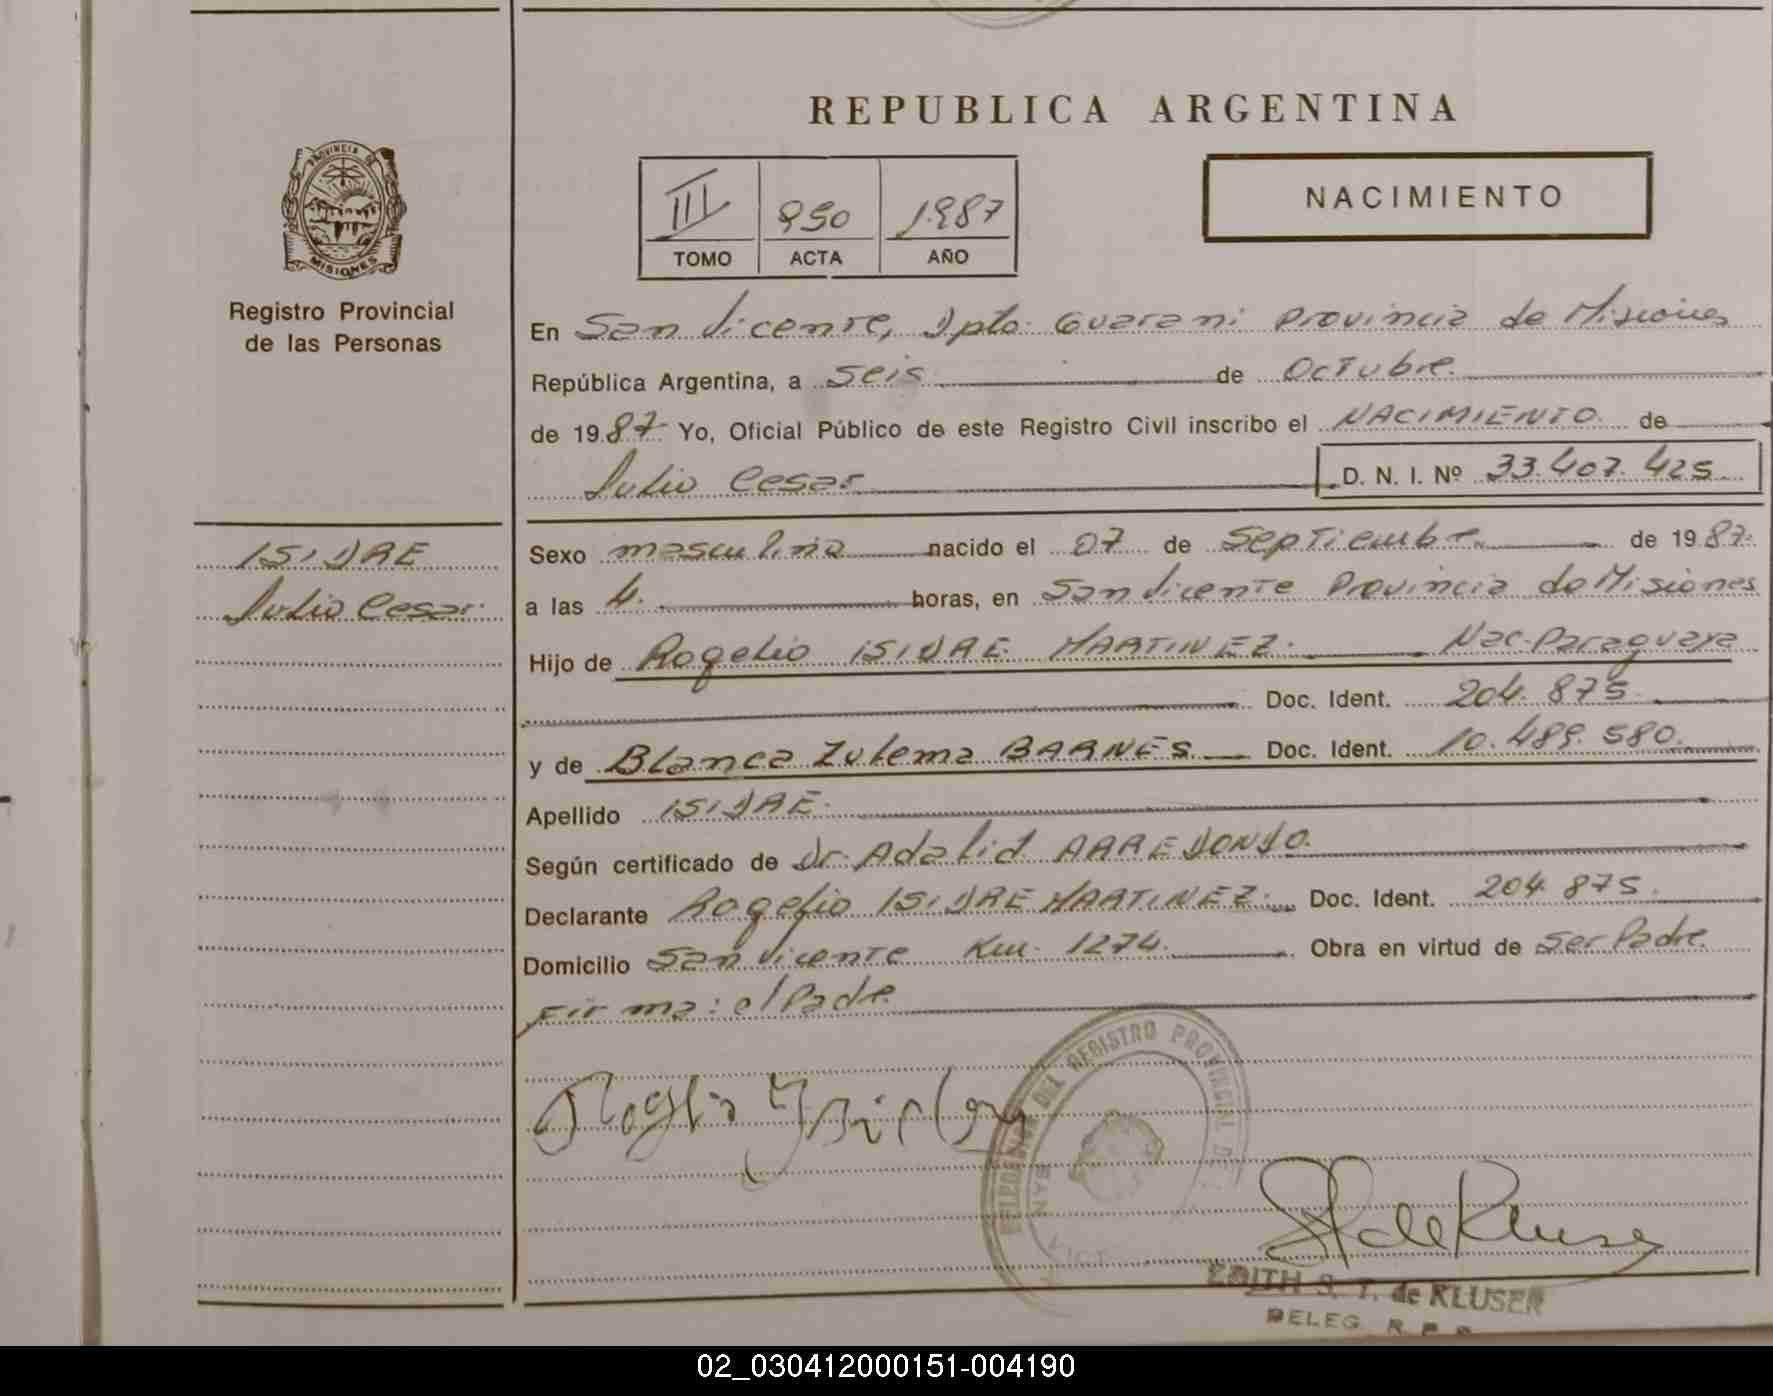 REPUBLICA ARGENTINA
PROVINCIA DE
MISIONES
Registro Provincial
de las Personas
III 950 1987
TOMO ACTA AÑO
NACIMIENTO
En San Vicente, Dpto. Guarani Provincia de Misiones
República Argentina, a seis de Octubre
de 1987 Yo, Oficial Público de este Registro Civil inscribo el NACIMIENTO de
Julio Cesar D. N. I. Nº 33.407.425
ISIDRE
Julio Cesar
Sexo masculino nacido el 07 de Septiembre de 1987
a las 4. horas, en San Vicente Provincia de Misiones
Hijo de Rogelio ISIDRE MARTINEZ. Nac. Paraguaya
Doc. Ident. 204.875
y de Blanca Zulema BARNES Doc. Ident. 10.489.580
Apellido ISIDRE
Según certificado de Dr. Adalid ARREDONDO.
Declarante Rogelio ISIDRE MARTINEZ. Doc. Ident. 204.875.
Domicilio San Vicente Km. 1274. Obra en virtud de Ser Padre
Firma: el Padre
DEL REGISTRO PROVINCIAL DE
SAN VICE
EDITH S. T. de KLUSER
DELEG. R. P. P.
02_030412000151-004190